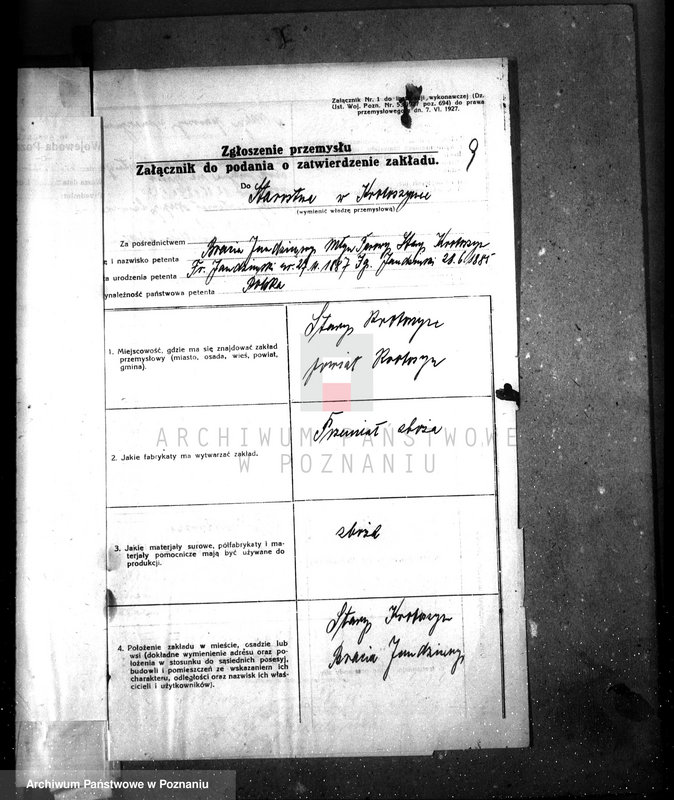 Załącznik Nr. 1 do wykonawczej (Dz.
Ust. Woj. Pozn. Nr. poz. 694) do prawa
przemysłowego dn. 7. VI. 1927.
9
Zgłoszenie przemysłu
Załącznik do podania o zatwierdzenie zakładu.
Do Starostwa w Krotoszynie
(wymienić władzę przemysłową)
Za pośrednictwem Bracia Młyn Parowy Stary Krotoszyn
ę i nazwisko petenta Fr. ur. 1887 Ig. 1885
ta urodzenia petenta
zynależność państwowa petenta Polska
1. Miejscowość, gdzie ma się znajdować zakład
przemysłowy (miasto, osada, wieś, powiat,
gmina).
Stary Krotoszyn
powiat Krotoszyn
2. Jakie fabrykaty ma wytwarzać zakład.
Przemiał zboża
ARCHIWUM PAŃSTWOWE
W POZNANIU
3. Jakie materjały surowe, półfabrykaty i ma-
terjały pomocnicze mają być używane do
produkcji.
zboże
4. Położenie zakładu w mieście, osadzie lub
wsi (dokładne wymienienie adresu oraz po-
łożenia w stosunku do sąsiednich posesyj,
budowli i pomieszczeń ze wskazaniem ich
charakteru, odległości oraz nazwisk ich właś-
cicieli i użytkowników).
Stary Krotoszyn
Bracia
Archiwum Państwowe w Poznaniu